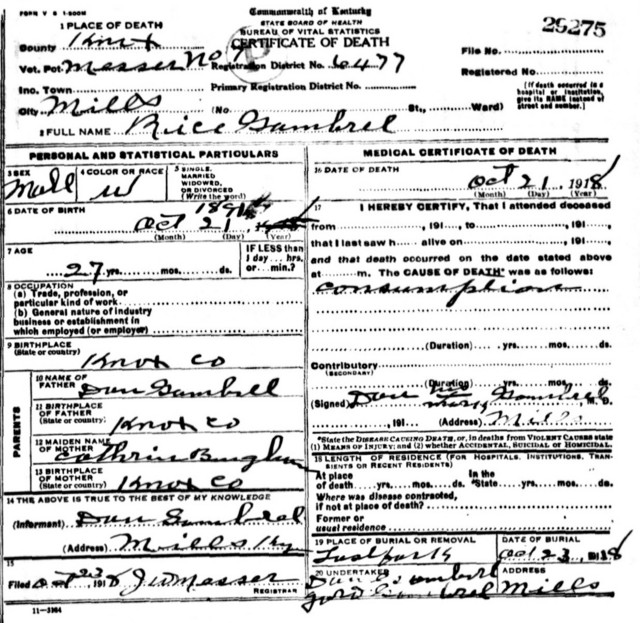 FORM V S 1-500M
Commonwealth of Kentucky
STATE BOARD OF HEALTH
BUREAU OF VITAL STATISTICS
CERTIFICATE OF DEATH
29275
1 PLACE OF DEATH
County Knox
Vot. Pct. Messer No 7 Registration District No. 6477
File No.
Inc. Town Primary Registration District No.
Registered No.
City Mills (No. St., Ward)
[If death occurred in a hospital or institution, give its NAME instead of street and number.]
2 FULL NAME Rice Gambrel
PERSONAL AND STATISTICAL PARTICULARS
3 SEX Mall
4 COLOR OR RACE W
5 SINGLE, MARRIED WIDOWED, OR DIVORCED (Write the word)
6 DATE OF BIRTH Oct 21 1891
(Month) (Day) (Year)
7 AGE 27 yrs. mos. ds.
IF LESS than 1 day... hrs. or... min.?
8 OCCUPATION
(a) Trade, profession, or particular kind of work
(b) General nature of industry business or establishment in which employed (or employer)
9 BIRTHPLACE (State or country) Knox Co
PARENTS
10 NAME OF FATHER Dan Gambrell
11 BIRTHPLACE OF FATHER (State or country) Knox Co
12 MAIDEN NAME OF MOTHER Cathrin
13 BIRTHPLACE OF MOTHER (State or country) Knox Co
14 THE ABOVE IS TRUE TO THE BEST OF MY KNOWLEDGE
(Informant) Dan Gambrel
(Address) Mills Ky
15
Filed Oct 23 1918 J W Messer
REGISTRAR
11-3164
MEDICAL CERTIFICATE OF DEATH
16 DATE OF DEATH Oct 21 1918
(Month) (Day) (Year)
17 I HEREBY CERTIFY, That I attended deceased
from , 191 , to , 191 ,
that I last saw h alive on , 191 ,
and that death occurred on the date stated above
at m. The CAUSE OF DEATH* was as follows:
Consumption
(Duration) yrs. mos. ds.
Contributory (SECONDARY)
(Duration) yrs. mos. ds.
(Signed) Dan Gambrel M. D.
, 191 (Address) Mills
*State the DISEASE CAUSING DEATH, or, in deaths from VIOLENT CAUSES state (1) MEANS OF INJURY; and (2) whether ACCIDENTAL, SUICIDAL or HOMICIDAL.
18 LENGTH OF RESIDENCE (FOR HOSPITALS, INSTITUTIONS, TRANSIENTS OR RECENT RESIDENTS)
At place of death yrs. mos. ds. In the State yrs. mos. ds.
Where was disease contracted, if not at place of death?
Former or usual residence
19 PLACE OF BURIAL OR REMOVAL
DATE OF BURIAL Oct 23 1918
20 UNDERTAKER Dan Gambrel
Gambrel
ADDRESS Mills